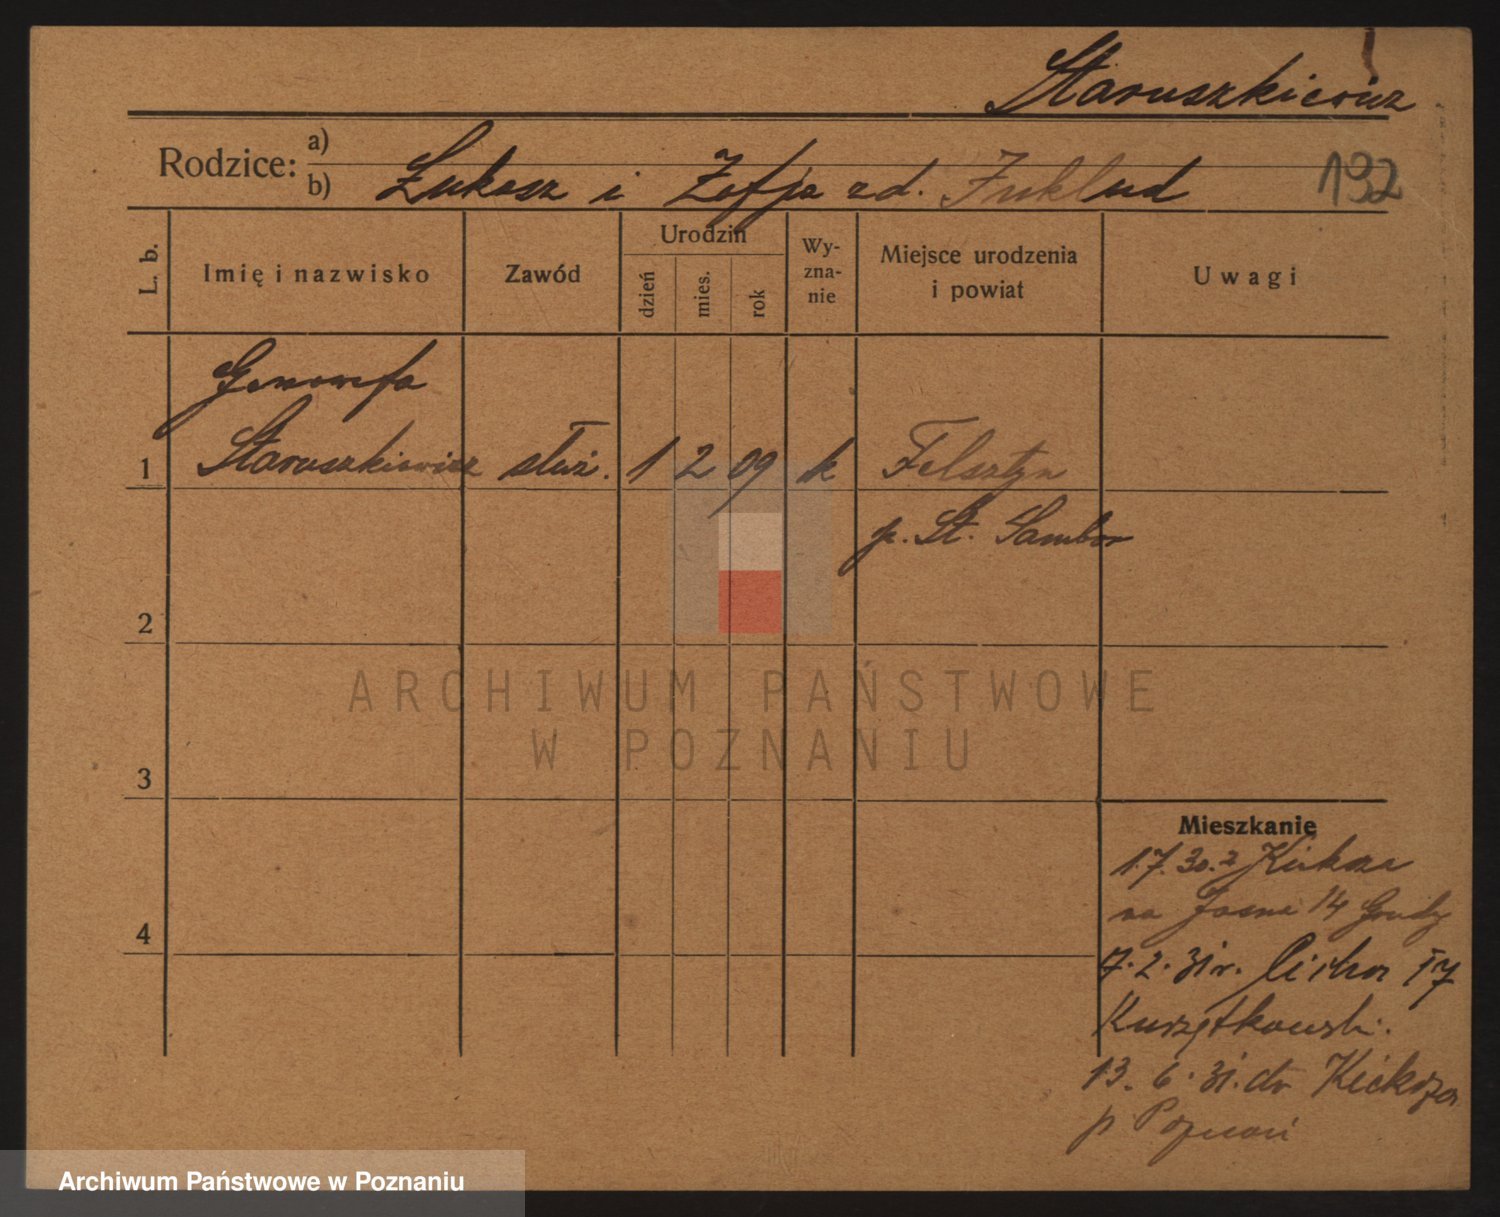 Staruszkiewicz
Rodzice:
a)
b) Łukasz i Zofja zd.
192
L. b.
Imię i nazwisko
Zawód
Urodzin
dzień
mies.
rok
Wy-
zna-
nie
Miejsce urodzenia
i powiat
Uwagi
Genowefa
1 Staruszkiewicz służ. 1 2 09 k Felsztyn
p. St. Sambor
2
ARCHIWUM PAŃSTWOWE
W POZNANIU
3
Mieszkanie
1.7.30. z Kiekrza
na Jasna 14
4
7.2.31 r. Cicha 17
Kurzętkowski.
13.6.31. do Kiekrza
p Poznań
Archiwum Państwowe w Poznaniu